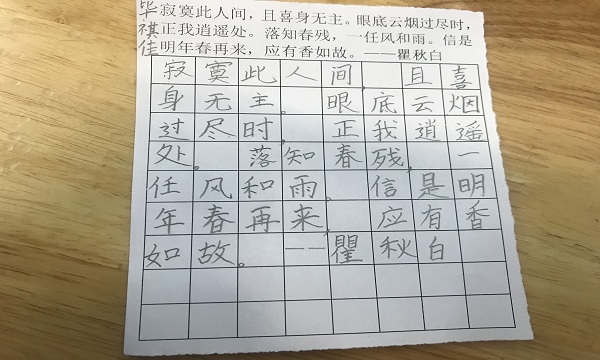 毕祺佳
寂寞此人间，且喜身无主。眼底云烟过尽时，
正我逍遥处。落知春残，一任风和雨。信是
明年春再来，应有香如故。——瞿秋白
寂寞此人间，且喜
身无主。眼底云烟
过尽时，正我逍遥
处。落知春残，一
任风和雨。信是明
年春再来，应有香
如故。——瞿秋白